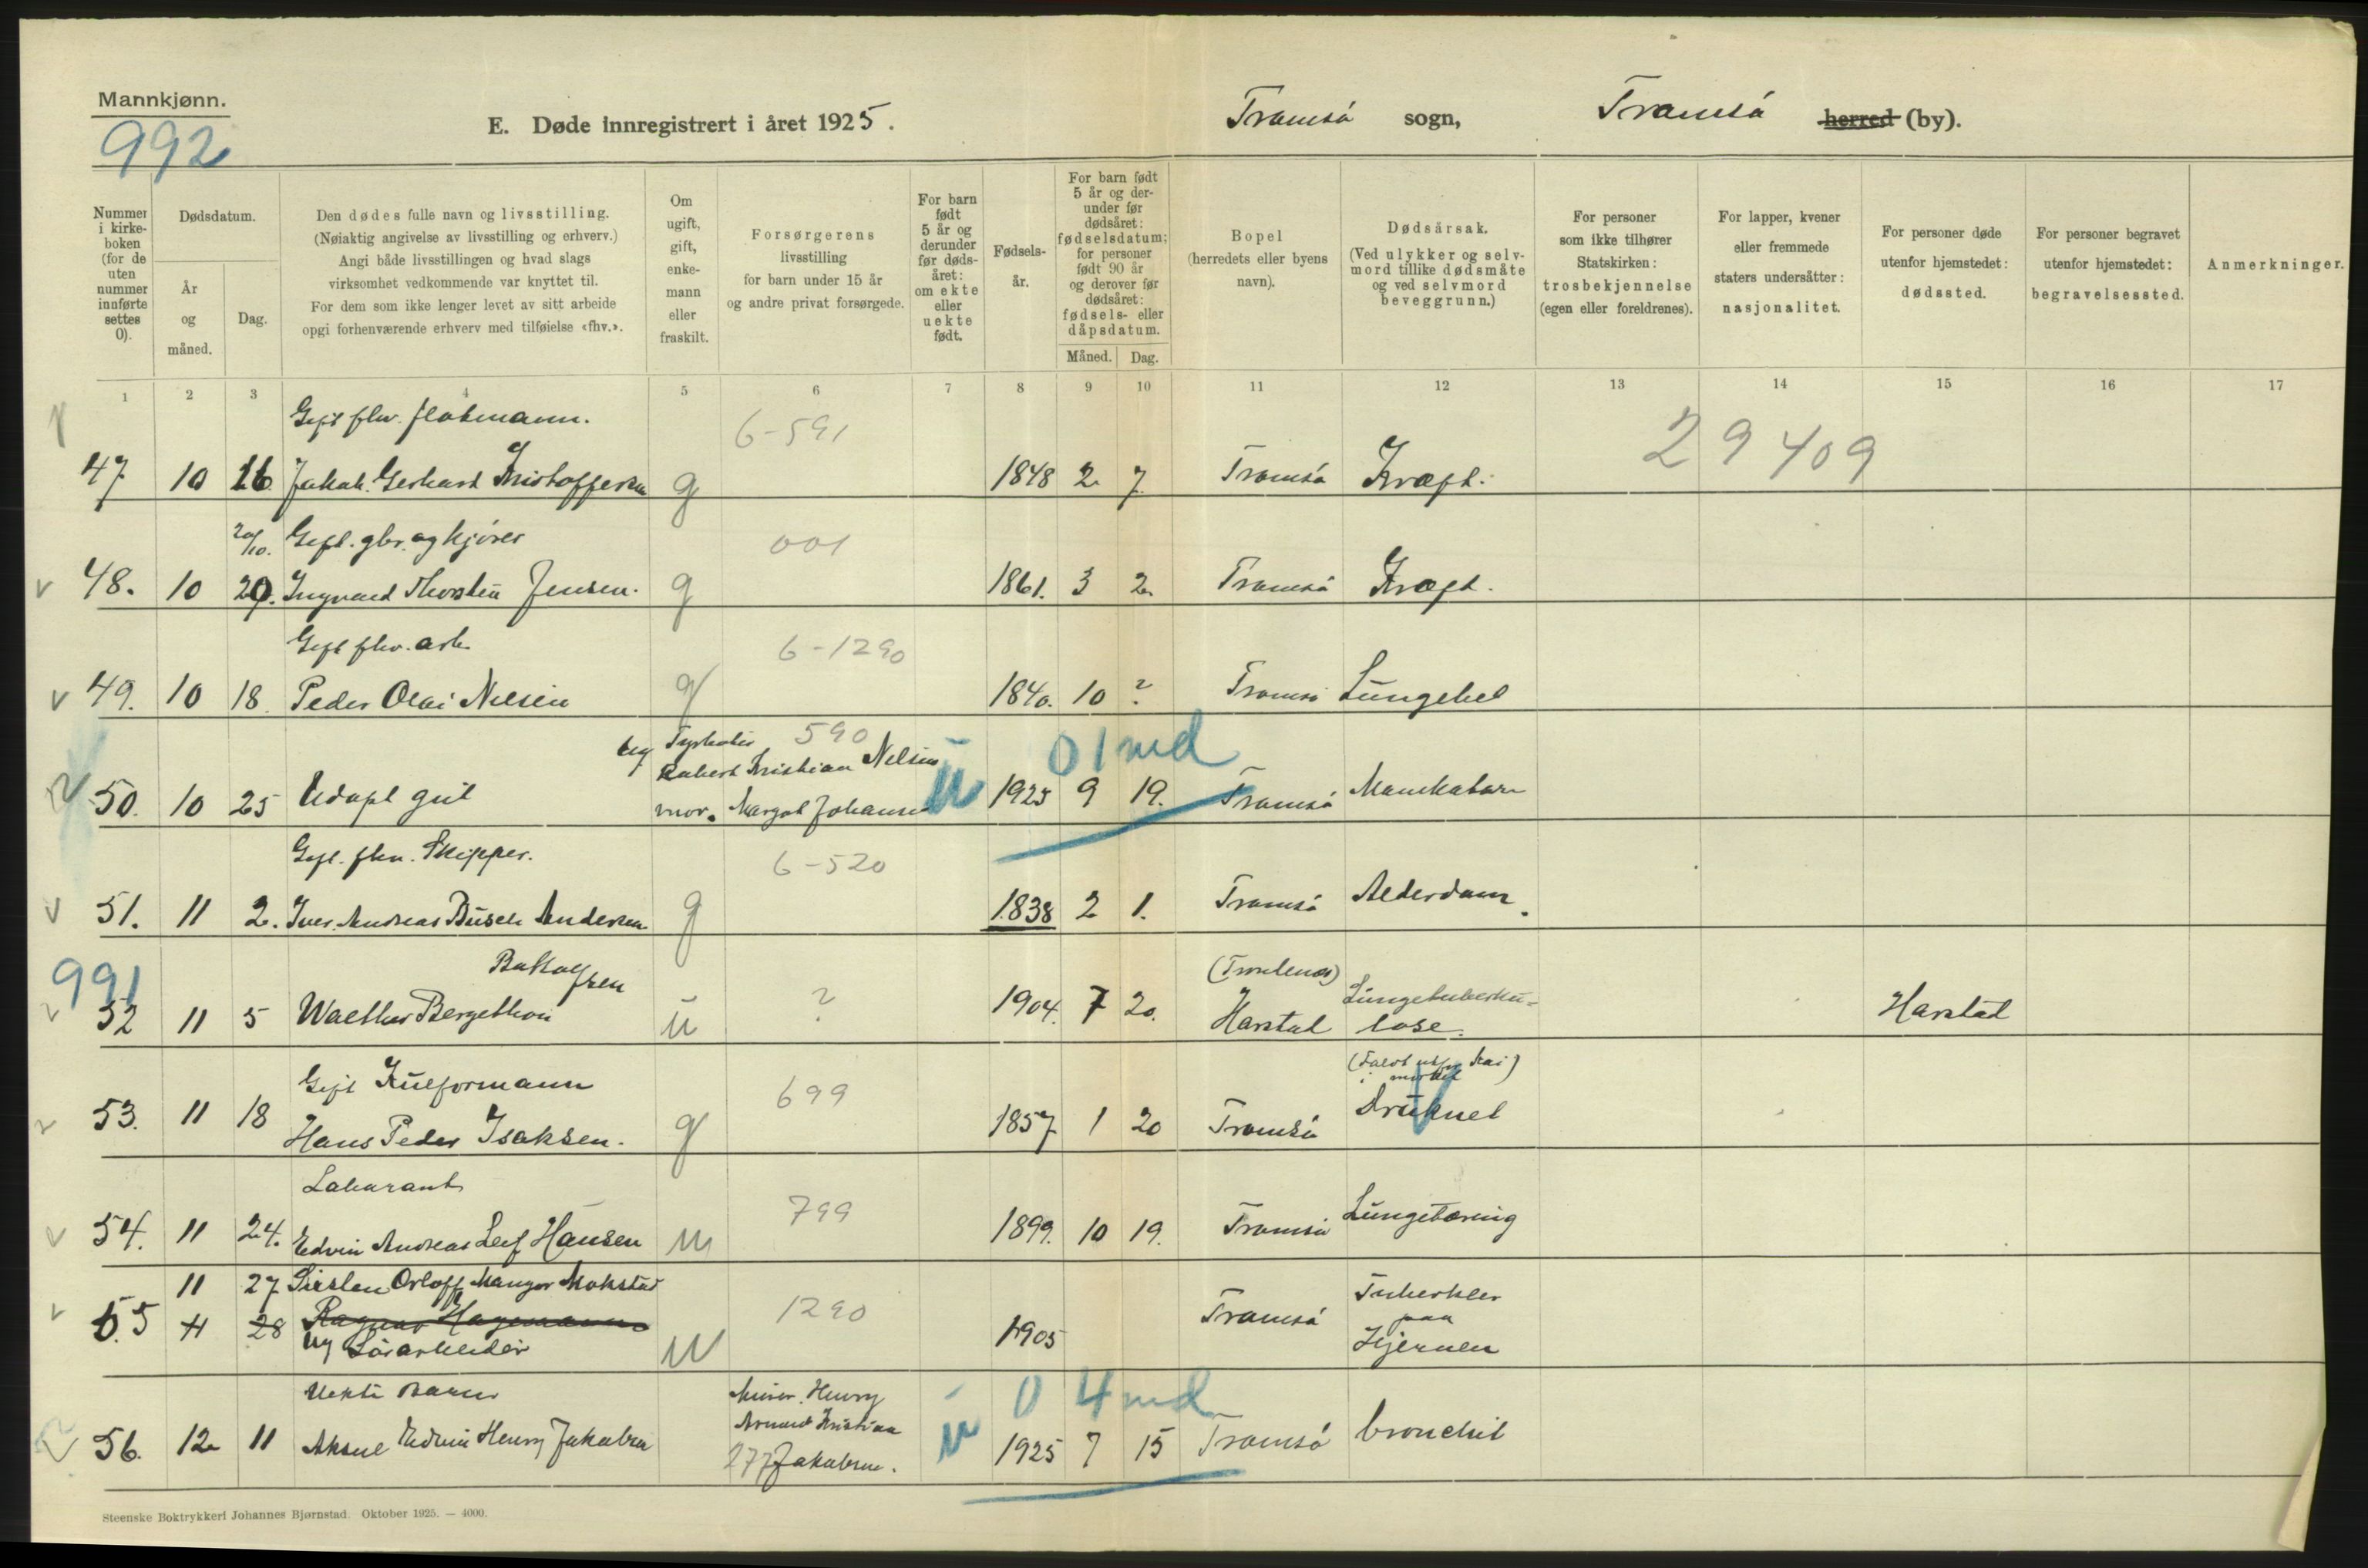 Mannkjønn.
992
E. Døde innregistrert i året 1925.
Tromsø sogn, Tromsø herred (by).
Nummer i kirkeboken (for de uten nummer innførte settes 0).
Dødsdatum.
År og måned.
Dag.
Den dødes fulle navn og livsstilling.
(Nøiaktig angivelse av livsstilling og erhverv.)
Angi både livsstillingen og hvad slags
virksomhet vedkommende var knyttet til.
For dem som ikke lenger levet av sitt arbeide
opgi forhenværende erhverv med tilføielse «fhv.».
Om ugift, gift, enkemann eller fraskilt.
Forsørgerens
livsstilling
for barn under 15 år
og andre privat forsørgede.
For barn født 5 år og derunder før dødsåret: om ekte eller uekte født.
Fødselsår.
For barn født 5 år og derunder før dødsåret: fødselsdatum; for personer født 90 år og derover før dødsåret: fødsels- eller dåpsdatum.
Måned. Dag.
Bopel
(herredets eller byens
navn).
Dødsårsak.
(Ved ulykker og selvmord tillike dødsmåte og ved selvmord beveggrunn.)
For personer
som ikke tilhører
Statskirken:
trosbekjennelse
(egen eller foreldrenes).
For lapper, kvener
eller fremmede
staters undersåtter:
nasjonalitet.
For personer døde
utenfor hjemstedet:
dødssted.
For personer begravet
utenfor hjemstedet:
begravelsessted.
Anmerkninger.
1 2 3 4 5 6 7 8 9 10 11 12 13 14 15 16 17
Gift fhv.
6-591
29409
47 10 16 Jakob Gerhard Kristoffersen g 1848 2 7 Tromsø Kræft.
20/10. Gift. gbr. og kjører
001
48. 10 20. Ingvard Thorstein Jensen. g 1861. 3 2 Tromsø Kræft.
Gift fhv. arb.
6-1290
49. 10 18. Peder Olai Nilsen g 1840. 10 ? Tromsø
590
01 md
Robert Kristian Nelsen
50. 10 25 Udøpt gut mor. Margot Johansen u 1925 9 19. Tromsø
Gift. fhv. Skipper.
6-520
51. 11 2. Iver Andreas Busch Andersen g 1838 2 1. Tromsø Alderdom.
991
52 11 5 Walther Bergethon u ? 1904. 7 20. Harstad Lungetuberkulose. Harstad
Gift Kulformann
699
53. 11 18 Hans Peder Isaksen. g 1857 1 20 Tromsø Druknet
Laborant
799
54. 11 24. Edvin Andreas Leif Hansen u 1899. 10 19. Tromsø Lungetæring
11 27 Orloff Mangor Mokstad
55 11 28 Ragnar Hagemann 1290 1905 Tromsø Tuberkler
paa
Hjernen
ug Løsarbeider u
Uekte Barn
Murer. Henry
Arnard Kristian
0 4 md
56. 12 11 Aksel Edvin Henry Jakobsen 277 Jakobsen. u 1925 7 15 Tromsø bronchit
Steenske Boktrykkeri Johannes Bjørnstad. Oktober 1925. — 4000.